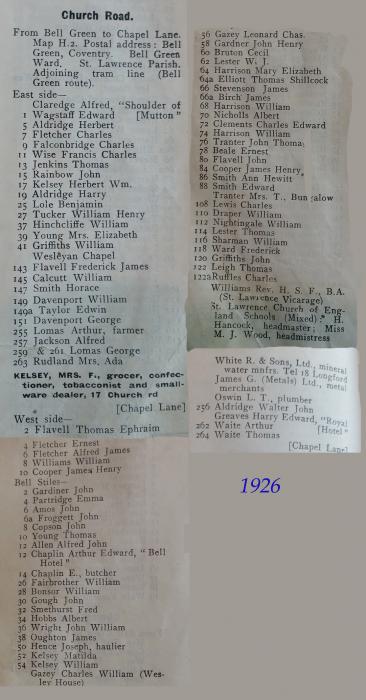 Church Road.
From Bell Green to Chapel Lane.
Map H.2. Postal address: Bell
Green, Coventry. Bell Green
Ward. St. Lawrence Parish.
Adjoining tram line (Bell
Green route).
East side—
Claredge Alfred, "Shoulder of
1 Wagstaff Edward [Mutton"
5 Aldridge Herbert
7 Fletcher Charles
9 Falconbridge Charles
11 Wise Francis Charles
13 Jenkins Thomas
15 Rainbow John
17 Kelsey Herbert Wm.
19 Aldridge Harry
25 Lole Benjamin
27 Tucker William Henry
37 Hinchcliffe William
39 Young Mrs. Elizabeth
41 Griffiths William
Wesleyan Chapel
143 Flavell Frederick James
145 Calcutt William
147 Smith Horace
149 Davenport William
149a Taylor Edwin
151 Davenport George
255 Lomas Arthur, farmer
257 Jackson Alfred
259 & 261 Lomas George
263 Rudland Mrs, Ada
KELSEY, MRS. F., grocer, confec-
tioner, tobacconist and small-
ware dealer, 17 Church rd
[Chapel Lane]
West side—
2 Flavell Thomas Ephraim
4 Fletcher Ernest
6 Fletcher Alfred James
8 Williams William
10 Cooper James Henry
Bell Stiles—
2 Gardiner John
4 Partridge Emma
6 Amos John
6a Froggett John
8 Copson John
10 Young Thomas
12 Allen Alfred John
12 Chaplin Arthur Edward, "Bell
Hotel"
14 Chaplin E., butcher
26 Fairbrother William
28 Bonsor William
30 Gough John
32 Smethurst Fred
34 Hobbs Albert
36 Wright John William
38 Oughton James
50 Hence Joseph, haulier
52 Kelsey Matilda
54 Kelsey William
Gazey Charles William (Wes-
ley House)
56 Gazey Leonard Chas.
58 Gardner John Henry
60 Bruton Cecil
62 Lester W. J.
64 Harrison Mary Elizabeth
64a Elliott Thomas Shillcock
66 Stevenson James
66a Birch James
68 Harrison William
70 Nicholls Albert
72 Clements Charles Edward
74 Harrison William
76 Tranter John Thomas
78 Beale Ernest
80 Flavell John
84 Cooper James Henry
86 Smith Ann Hewitt
88 Smith Edward
Tranter Mrs. T., Bungalow
108 Lewis Charles
110 Draper William
112 Nightingale William
114 Lester Thomas
116 Sharman William
118 Ward Frederick
120 Griffiths John
122 Leigh Thomas
122a Ruffles Charles
Williams Rev. H. S. F., B.A.
(St. Lawrence Vicarage)
St. Lawrence Church of Eng-
land Schools (Mixed): H.
Hancock, headmaster; Miss
M. J. Wood, headmistress
White R. & Sons, Ltd., mineral
water mnfrs. Tel 18 Longford
James G. (Metals) Ltd., metal
merchants
Oswin L. T., plumber
256 Aldridge Walter John
Greaves Harry Edward, "Royal
262 Waite Arthur [Hotel"
264 Waite Thomas
[Chapel Lane]
1926